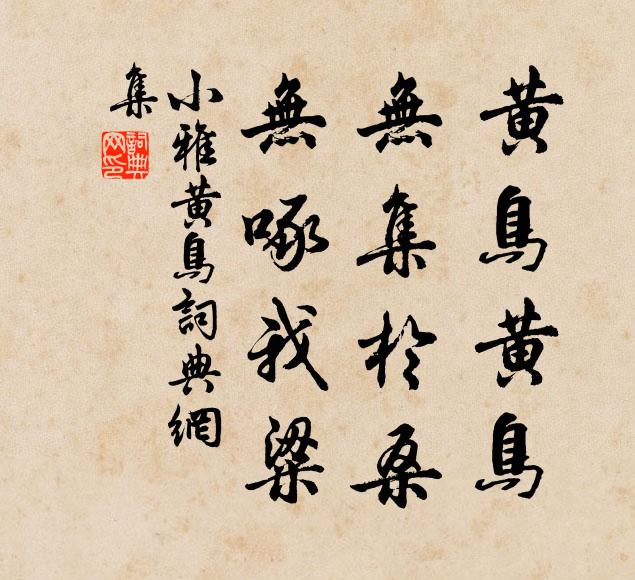 黃鳥黃鳥
無集於桑
無啄我梁
小雅黃鳥詞典網
集
詞典
网印